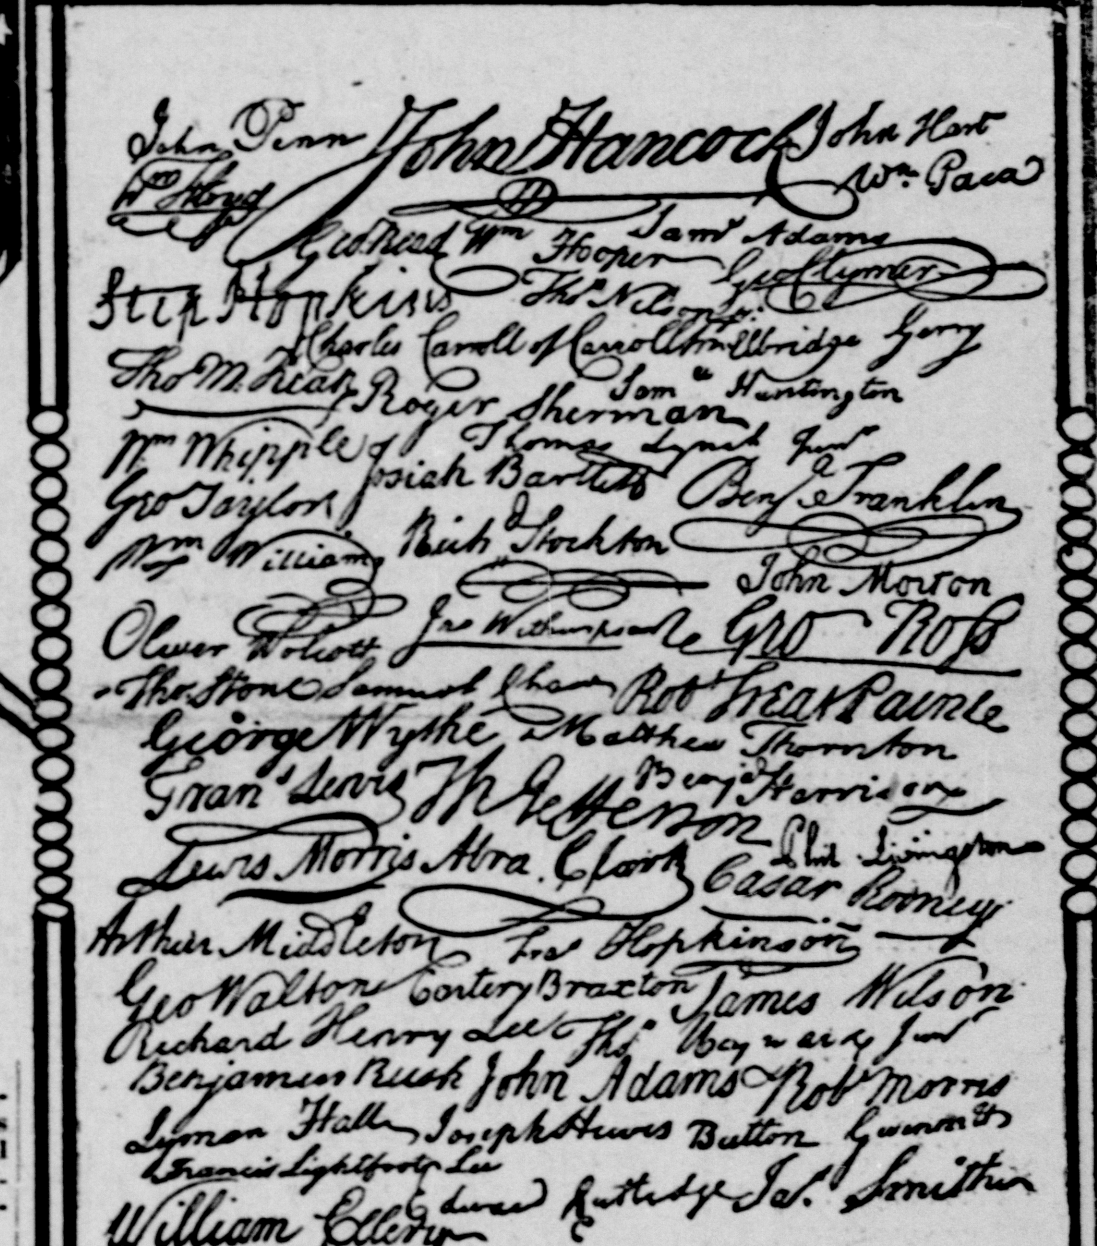 John Penn John Hancock John Hart
Wm Floyd Wm. Paca
Geo Read Wm Hooper Saml Adams
Step Hopkins Thos Nelson jr. Geo Clymer
Charles Carroll of Carrollton Elbridge Gerry
Tho M. Kean Roger Sherman Saml Huntington
Wm Whipple Thomas Lynch Junr
Geo Taylor Josiah Bartlett Benj Franklin
Wm Williams Rich Stockton John Morton
Oliver Wolcott Jno Witherspoon Geo Ross
Thos. Stone Samuel Chase Robt Treat Paine
George Wythe Matthew Thornton
Frans Lewis Th Jefferson Benj Harrison
Lewis Morris Abra. Clark Phil. Livingston
Casar Rodney
Arthur Middleton Fras Hopkinson
Geo Walton Carter Braxton James Wilson
Richard Henry Lee Thos Heyward Junr
Benjamin Rush John Adams Robt Morris
Lyman Hall Joseph Hewes Button Gwinnett
Francis Lightfoot Lee
William Ellery Edward Rutledge Jas. Smith